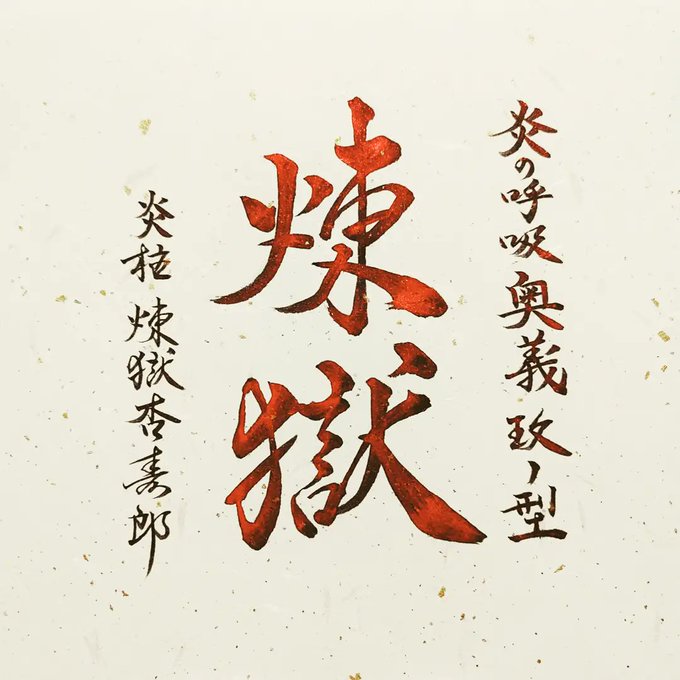 炎の呼吸奥義玖ノ型
煉獄
炎柱 煉獄杏寿郎